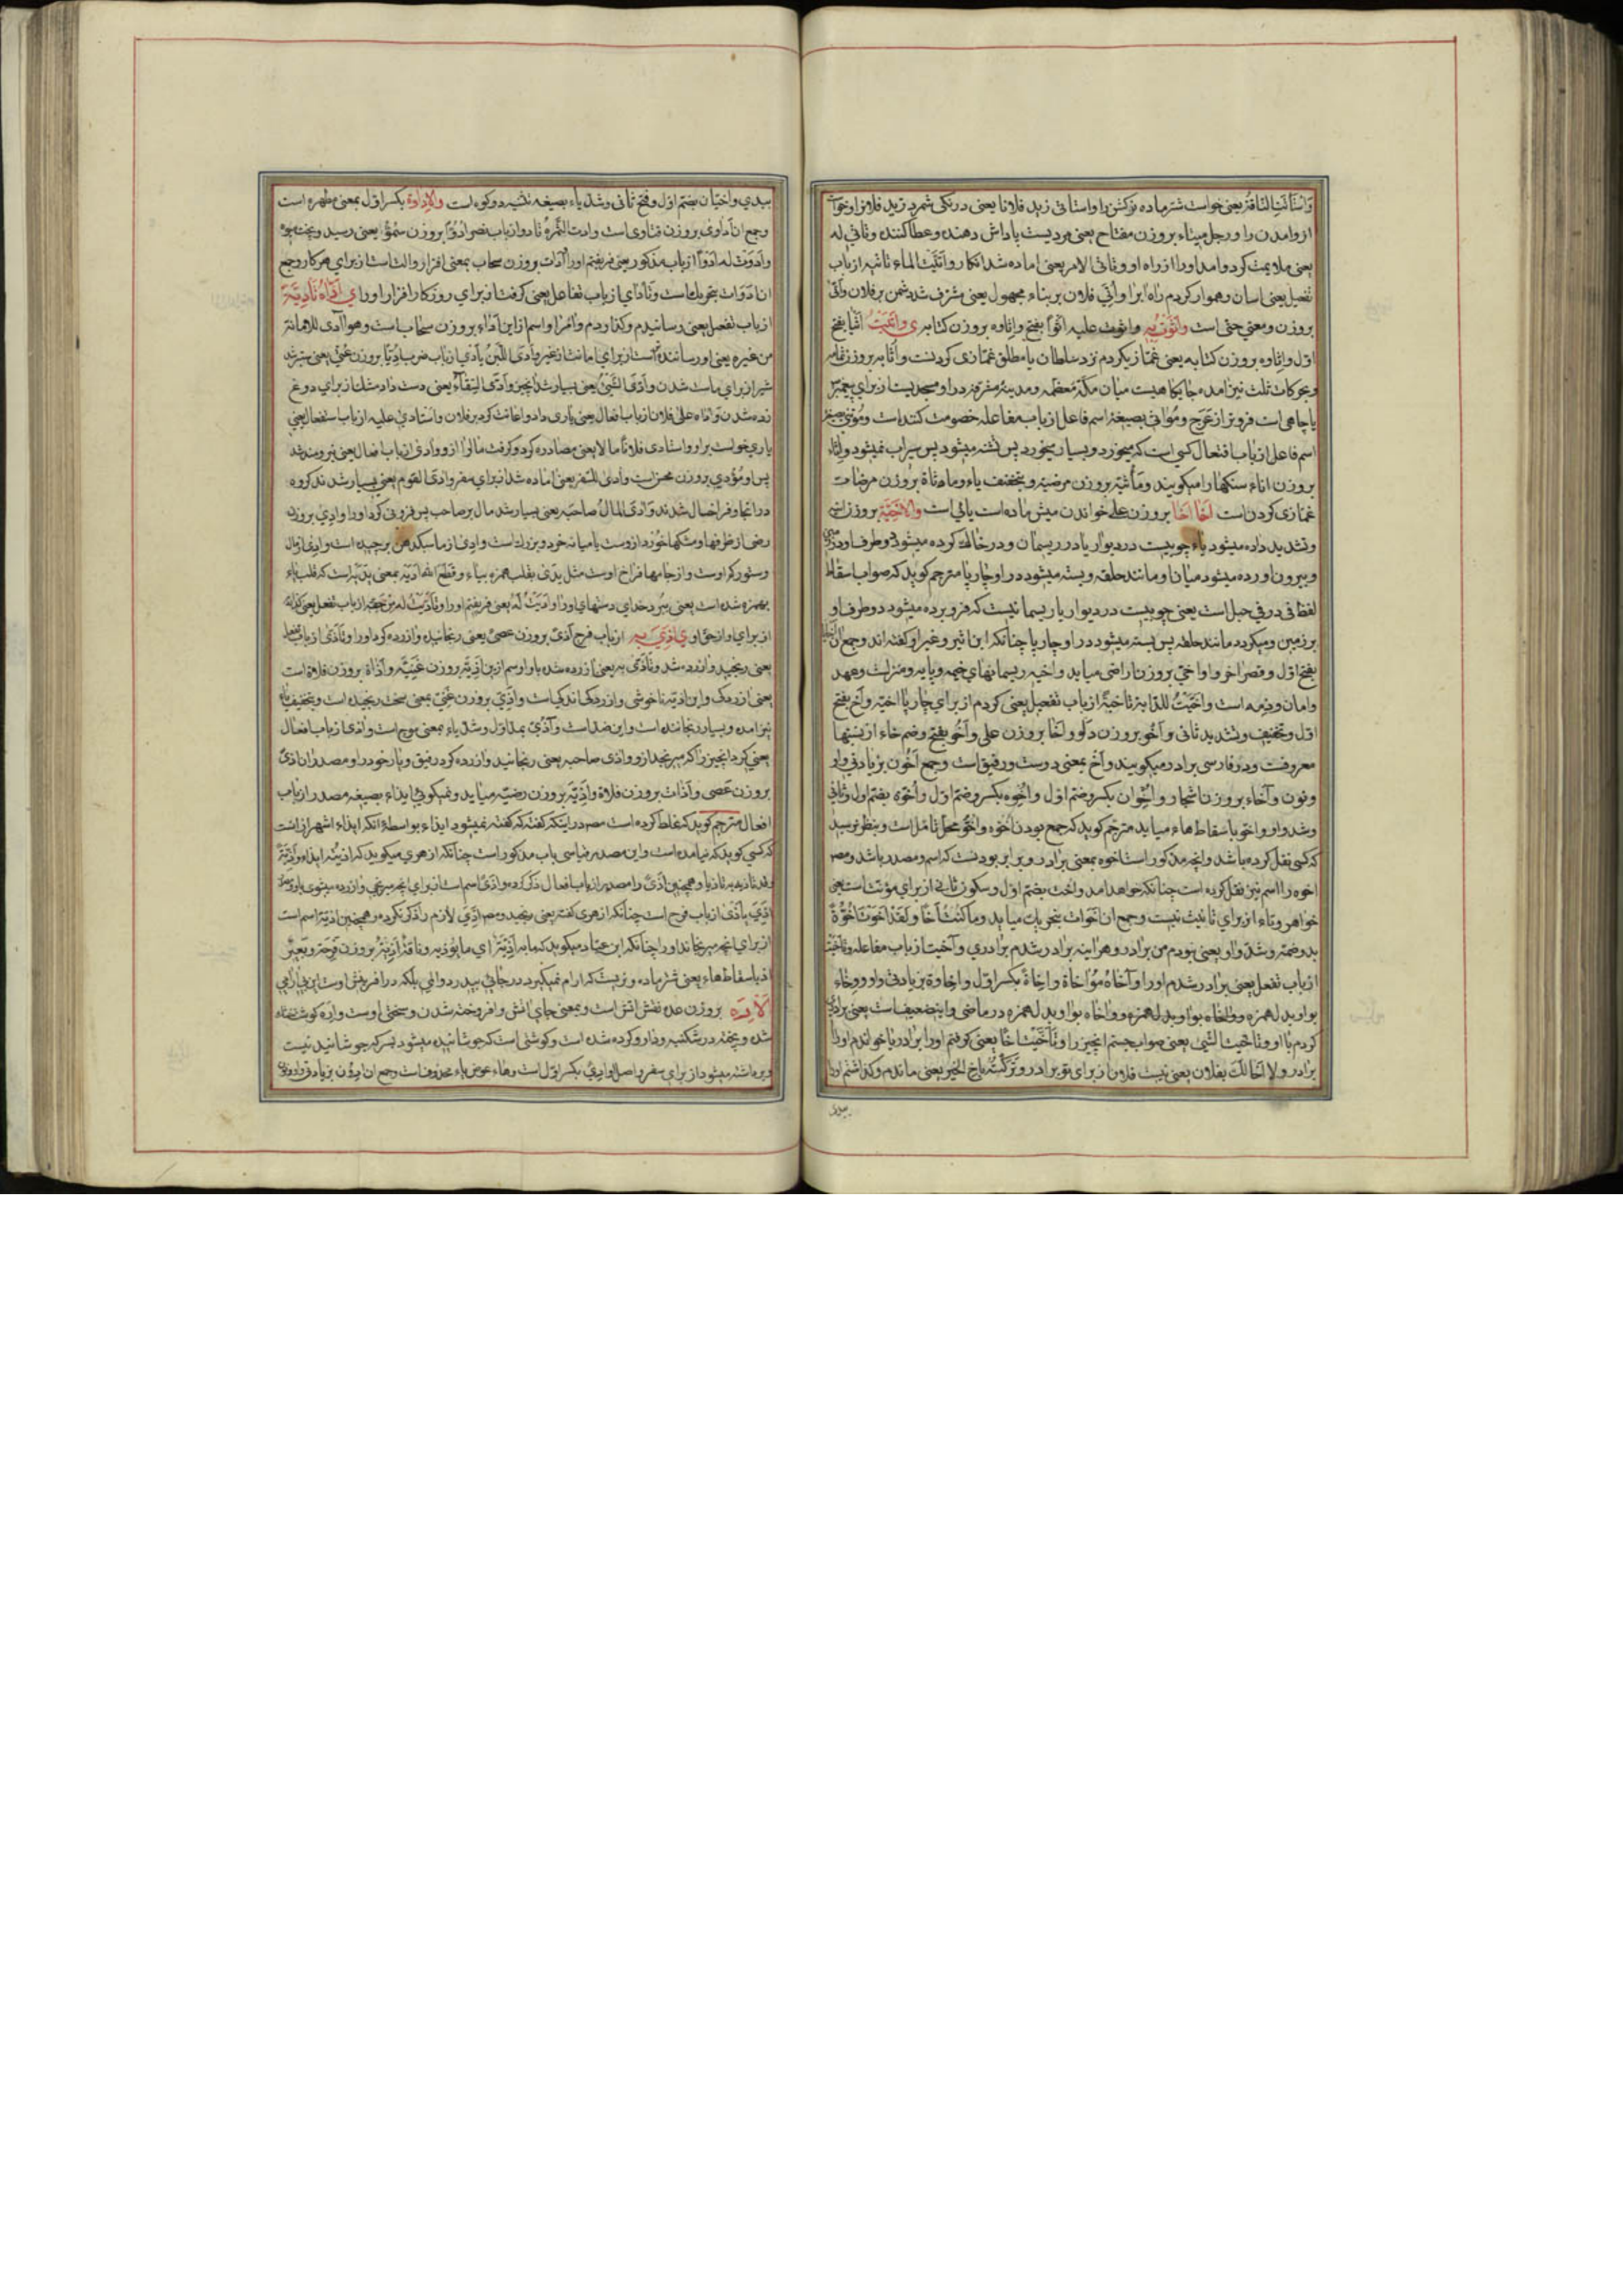 وَاسْتَأْتَتِ النّاقَةُ یعنی خواست شتر ماده نرکش را واستاتی زید فلانا یعنی درنکی شمرد زید فلانرا وخواست
از وامدن را ورجل میتاء بروزن مفتاح یعنی مردیست پاداش دهنده وعطاکننده وتاتی له
یعنی ملایمت کرد وامد اورا از راه او وتاتی الامر یعنی اماده شد انکار واَتَّیْتُ الماء تاتیه از باب
تفعیل یعنی اسان وهموار کردم راه ابرا واُتِیَ فلان بر بناء مجهول یعنی مشرف شد دشمن بر فلان
بروزن ومعنی حتی است واَثَوْتُ بِهِ واثوت علیه اثوًا بفتح واِثاوه بروزن کتابه ی واَثَیْتُ اَثْیًا بفتح
اوّل واِثاوه بروزن کتابه یعنی غمّازی کردم نزد سلطان یا مطلق غمّازی کردنست واُثایه بروزن ثمامه
وبحرکات ثلث نیز امده جایکاهیست میان مکّهٔ معظّمه ومدینهٔ مشرفه در او مسجدیست از برای پیغمبر
یا چاهی است فروتر از عَرَج ومُؤاثی بصیغهٔ اسم فاعل از باب مفاعله خصومت کننده است
اسم فاعل از باب افتعال کسی است که میخورد وبسیار میخورد پس تشنه میشود پس سیراب نمیشود واِثاء
بروزن اناء سنکها را میکویند ومَأْثیَة بروزن مرضیّه وبتخفیف یاء وماء ثاة بروزن مرضات
غمّازی کردن است اَخَا اَخَا بروزن علی خواندن میش ماده است یائی است والاَخیّة بروزن
وتشدید داده میشود یاء چوبیست در دیوار یا در ریسمان ودر خاک کرده میشود دو طرف او
وبیرون اورده میشود میان او مانند حلقه وبسته میشود در او چارپا مترجم کوید که صواب اسقاط
لفظ فی در فی حبل است یعنی چوبیست در دیوار یا ریسمانیست که فرو برده میشود دو طرف او
بر زمین ومیکردد مانند حلقه پس بسته میشود در او چارپا چنانکه ابن اثیر وغیر او کفته اند وجمع ان
بفتح اوّل وقصر اخر واواخیّ بروزن اراضی میاید واخیه ریسمانهای خیمه وپایه ومنزلت وعهد
وامان وذمه است واخَّیْتُ للدّابة تأخیةً از باب تفعیل یعنی کردم از برای چارپا اخیّه واَخ بفتح
اوّل وتخفیف وتشدید ثانی واَخُو بروزن دَلو واَخَا بروزن علی واَخُو بفتح وضم خاء از نسبتها
معروفست ودر فارسی برادر میکویند واَخ بمعنی دوست ورفیق است وجمع اَخُون بزیادتی واو
ونون وآخاء بروزن اشجار واِخوان بکسر وضم اوّل واِخوه بکسر وضم اوّل واُخوّه بضم اول وثانی
وشد واو واخو باسقاط هاء میاید مترجم کوید که جمع بودن اُخوه واُخُو محلّ تامّل است وبنظر نرسید
که کسی نقل کرده باشد وانچه مذکور است اخوه بمعنی برادر وبرابر بودنست که اسم ومصدر باشد ومصـ
اخوه را اسم نیز نقل کرده است چنانکه خواهد امد واخت بضم اوّل وسکون ثانی از برای مؤنث است یعنی
خواهر وتاء از برای تانیث نیست وجمع ان اَخَوات بتحریک میاید وما کُنتُ اَخًا ولَقَد اَخَوْتَ اُخُوَّةً
بدو ضمّه وشدّ واو یعنی نبودم من برادر وهراینه برادر شدم برادری وآخیت از باب مفاعله وتاخَّیْت
از باب تفعل یعنی برادر شدم اورا وآخاهُ مُؤاخاة واِخاءً بکسر اوّل واِخاوة بزیادتی واو ووِخاء
بواو بدل همزه وواخاه بواو بدل همزه در ماضی واینضعیف است یعنی برادری
کردم با او وتاخّیت الشّیئ یعنی صواب جستم انچیز را وتَأَخَّیْتُ اَخًا یعنی کرفتم اورا برادر یا خواندم اورا
برادر ولا اَخَا لَکَ بفلان یعنی نیست فلان از برای تو برادر وتَرَکْتُهُ باَخِ الخَیر یعنی ماندم وکذاشتم اورا
ببدی
ببدی واخیّان بضم اوّل وفتح ثانی وشدّ یاء بصیغه تثنیه دو کوه است والاِداوة بکسر اوّل بمعنی مطهره است
وجمع ان اَداوی بروزن فتاوی است وادت الثَّمرة تادو از باب نصر اُدُوًّا بروزن سُمُوّ یعنی رسید وپخته
واَدَوْتُ له اَدْوًا از باب مذکور یعنی فریفتم اورا واَدات بروزن سحاب بمعنی افزار والتست از برای هر کار وجمع
ان اَدَوات بتحریک است وتاٰدای از باب تفاعل یعنی کرفت از برای روزکار افزار اورا ی اَدّاهُ تَأْدِیَةً
از باب تفعیل یعنی رسانیدم وکذاردم وامرا واسم از این اَداء بروزن سحاب است وهو اٰدی للامانة
من غیره یعنی او رساننده تر است از برای امانت از غیر واَدَی اللَّبَنُ یأدی از باب ضرب اُدِیًّا بروزن عُتِیّ یعنی سبر شد
شیر از برای ماست شدن واَدَی الشَّیْئُ یعنی بسیار شد انچیز واَدَی السّقاء یعنی دست داد مشک از برای دوغ
زده شدن واٰداه علی فلان از باب افعال یعنی یاری داد واعانت کرد بر فلان واستادی علیه از باب استفعال یعنی
یاری خواست بر او واستادی فلانا مالا یعنی مصادره کرد وکرفت مال را از او واٰدی از باب افعال یعنی نیرومند شد
پس او مُؤدی بروزن محسن است واٰدی للسّفر یعنی اماده شد از برای سفر واٰدی القوم یعنی بسیار شدند کروه
در انجا وفراخسال شدند واٰدی المالُ صاحبه یعنی بسیار شد مال بر صاحب پس فزونی کرد اورا واَدِی بروزن
رضی از ظرفها ومشکها خورد از وست یا میانه خرد وبزرک است وادی از ما سبک برچیده است وادی از مال
وستور کم اوست واز جامها فراخ اوست مثل یدّی بقلب همزه بیاء وقطع الله اَدَیه بمعنی یَدَیه است که قلب یاء
بهمزه شده است یعنی ببرد خدای دستهای اورا واَدَیْتُ لَهُ یعنی فریفتم اورا وتأدّیت له من حقّه از باب تفعل یعنی کذارده
از برای او از حق او ی اَذِیَ بِهِ از باب فرح اَذیً بروزن عصیً یعنی رنجانیده وازرده کرد اورا وتَأَذّی از باب تفعل
یعنی رنجید وازرده شد وتاذّی به یعنی ازرده شد باو واسم از این اَذِیّة بروزن غَنِیّه واَذاة بروزن فلاة است
یعنی ازردکی واین اذیّه ناخوشی وازردکی اندکی است واَذِیّ بروزن غَنِیّ بمعنی سخت رنجیده است وبتخفیف یاء
نیز امده وبسیار رنجاننده است واین ضد است واٰذِیّ بمدّ اوّل وشدّ یاء بمعنی موج است واٰذی از باب افعال
یعنی کرد انچیز را که میرنجد از او واٰذی صاحبه یعنی رنجانید وازرده کرد رفیق ویار خود را ومصدر ان اذیً
بروزن عَصی واَذات بروزن فلاة واَذِیّه بروزن رضیّه میاید ونمیکوئی ایذاء بصیغه مصدر از باب
افعال مترجم کوید که غلط کرده است مصـ در اینکه کفته که کفته نمیشود ایذاء بواسطهٔ آنکه ایذاء اشهر از انست
که کسی کوید که نیامده است واین مصدر قیاسی باب مذکور است چنانکه ازهری میکوید که اذیته ایذاء واَذِیّةً
وقد تاذیت به تاذیا وهمچنین اذیً را مصدر از باب افعال ذکر کرده واَذیً اسم است از برای انچه میرنجی وازرده میشوی باو
اَذِیَ یأذی از باب فرح است چنانکه ازهری کفته یعنی رنجید ومصـ اَذِیَ لازم را ذکر نکرده وهمچنین اذیّة اسم است
از برای انچه میرنجاند اورا چنانکه ابن عبّاد میکوید که ما به اَذِیّةٌ ای ما یؤذیه وناقة اَذِیَةٌ بروزن فرحة وبعیر
اذ باسقاط هاء یعنی شتر ماده ونریست که ارام نمیکیرد در جائی بی درد والمی بلکه در افرینش اوست
لاَرَة بروزن عده نفس اتش است وبمعنی جای اتش وافروخته شدن وسختی اوست واِرَه کوشت
شده وپخته در شکنبه ودارو کرده شده است وکوشتی است که جوشانیده میشود بسرکه جوشانیدنیست
وبرداشته میشود از برای سفر واصل او اِرْیٌ بکسر اوّل است وهاء عوض یاء محذوفه است وجمع ان اِرون بزیادتی واو ونون